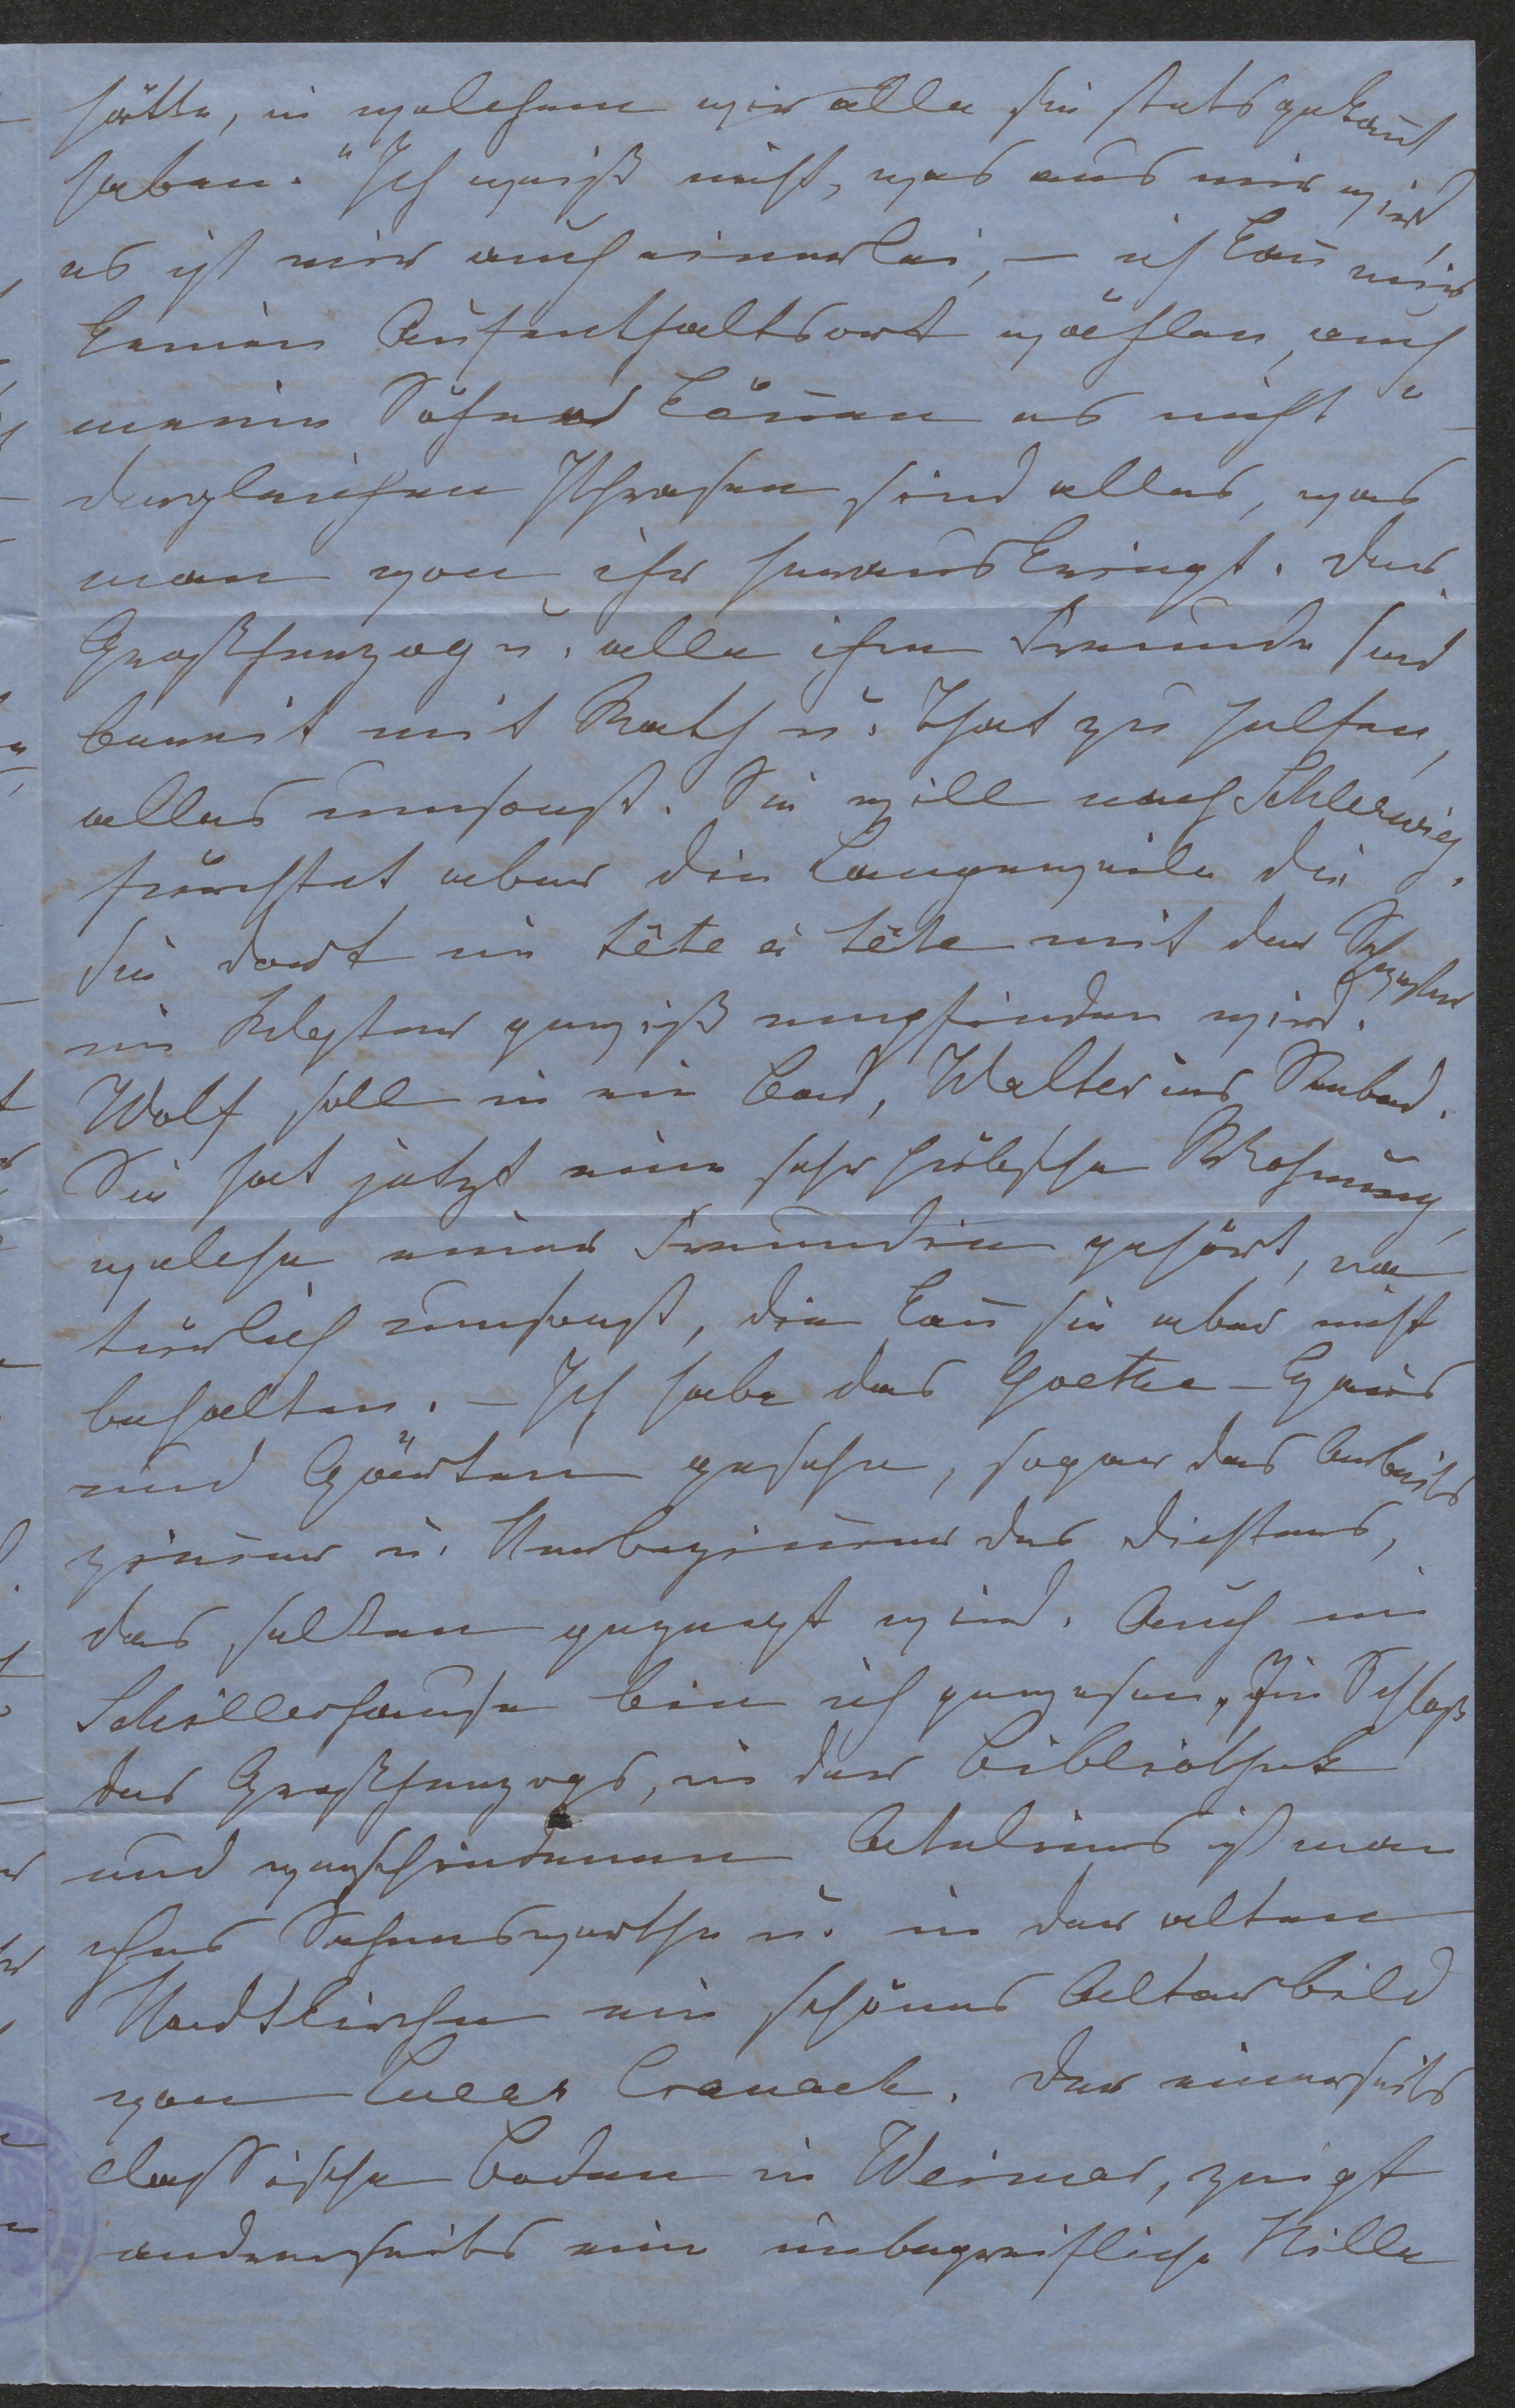 hätte, in welchem wir alle sie stets gekañt
haben. "Ich weiß nicht, was aus mir wird,
es ist mir auch einerlei, – ich kañ mir
keinen Aufenthaltsort wählen, auch
meine Söhne köñen es nicht" –
dergleichen Phrasen sind alles, was
man von ihr herauskriegt. Der
Großherzog u. alle ihre Freunde sind
bereit mit Rath u. That zu helfen,
alles umsonst. Sie will nach Schleswig,
fürchtet aber die Langeweile die
sie dort im tête à tête mit der Schwester
im Kloster gewiß empfinden wird.
Wolf soll in ein Bad, Walter ins Seebad.
Sie hat jetzt eine sehr hübsche Wohnung,
welche einer Freundin gehört, na
türlich umsonst, die kañ sie aber nicht
behalten. – Ich habe das Goethe-Haus
und Garten gesehen, sogar das Arbeits
zim̄er u. Sterbezim̄er des Dichters,
das selten gezeigt wird. Auch im
Schillerhause bin ich gewesen, Im Schloß
des Großherzogs, in der Bibliothek
und verschiedenen Ateliers ist man
ches Sehenswerthe u. in der alten
Stadtkirche ein schönes Altarbild
von Lucas Cranach. Der einerseits
classische Boden in Weimar, zeigt
anderseits eine unbegreifliche Stille